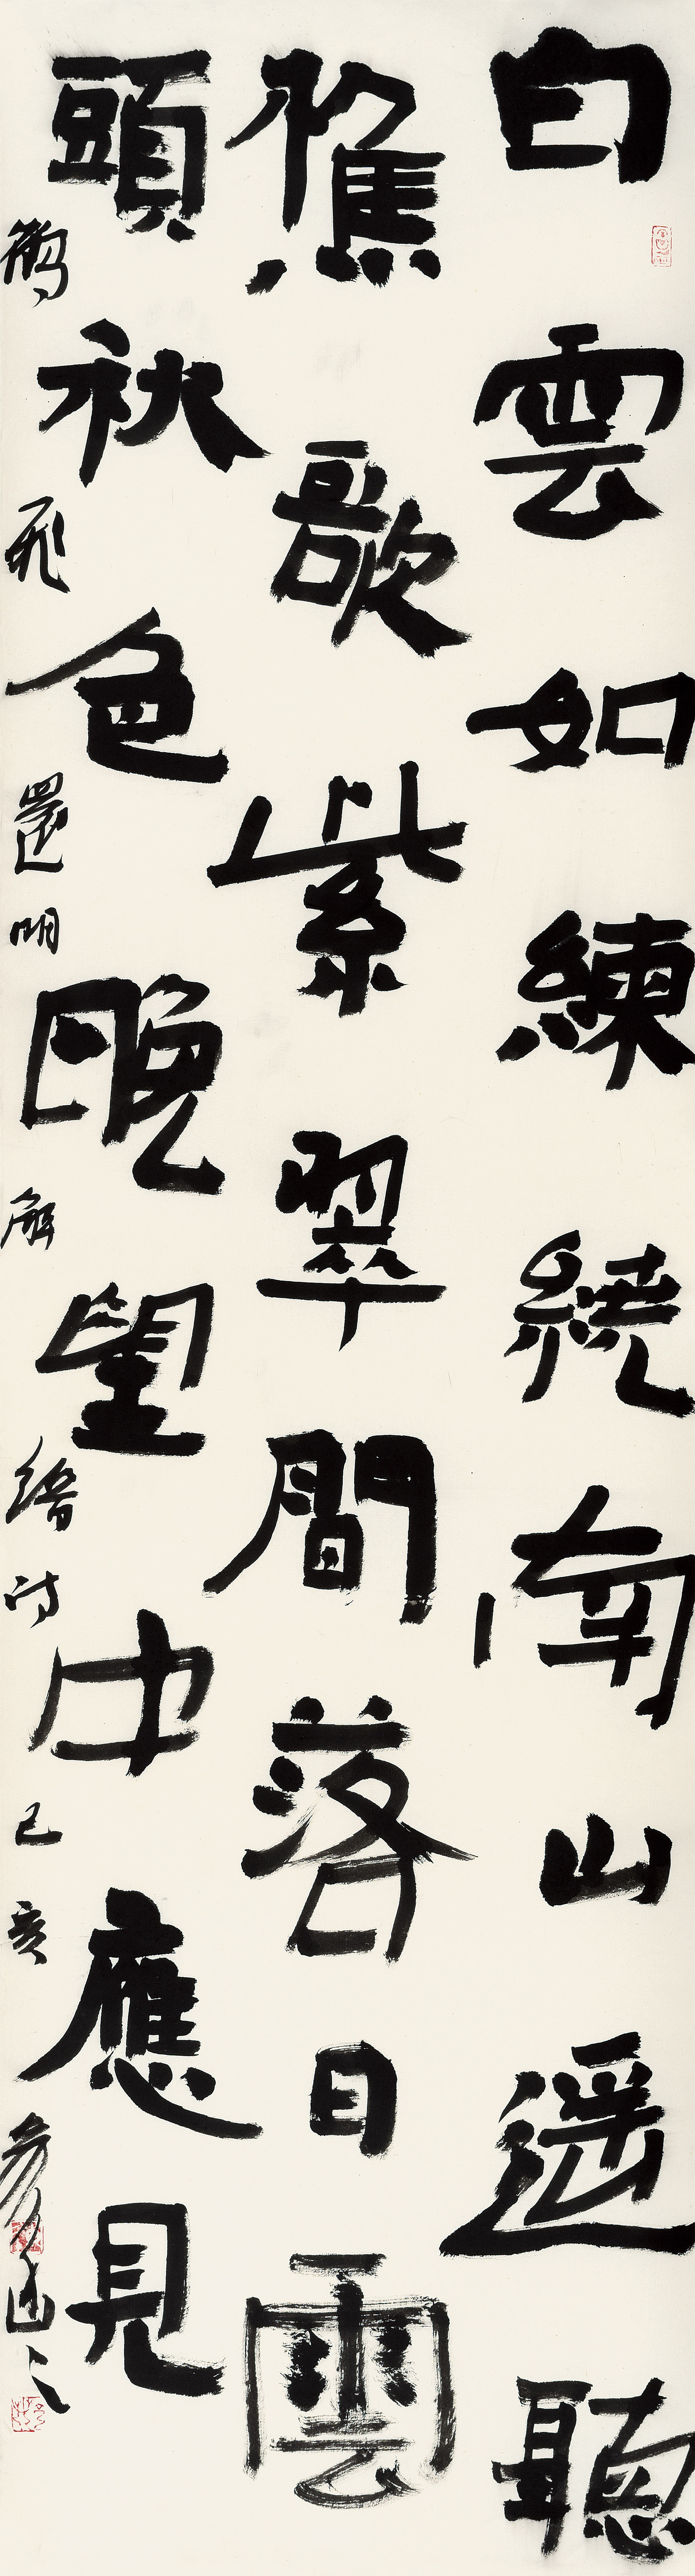 白雲如練繞南山遥聽
樵歌紫翠間落日雲
頭秋色晚望中應見
鶴飛還明解縉詩己亥